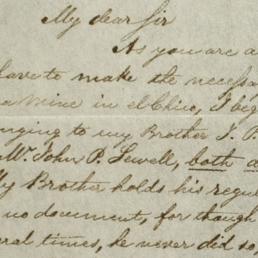 My dear Sir
As you are a
leave to make the necessa
a mine in el Chico, I beg
nging to my Brother J. P.
W. John P. Sewell, both a
My Brother holds his regul
no document, for though
eral times, he never did so,